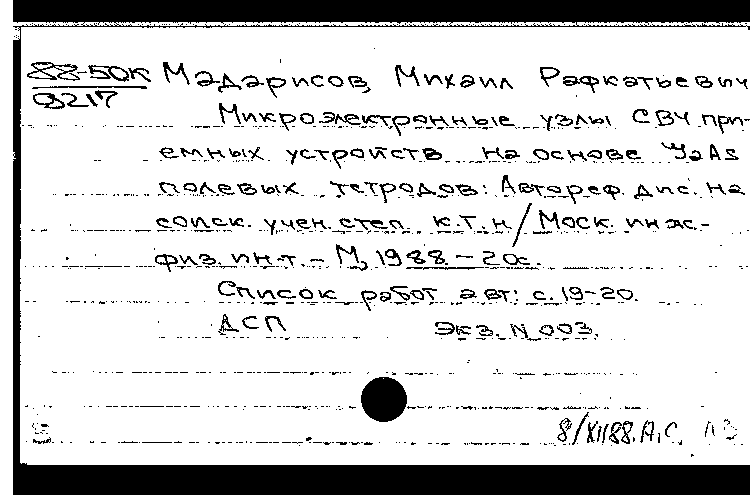 88-50К Мадарисов, Михаил Рафкатьевич
9217
Микроэлектронные узлы СВЧ при-
емных устройств на основе GaAs
полевых тетродов: Автореф. дис. на
соиск. учен. степ. к.т.н / Моск. инж.-
физ. ин-т. – М, 1988. – 20с.
Список работ авт: с. 19-20.
ДСП Экз. N 003.
8/XII88. А.С.